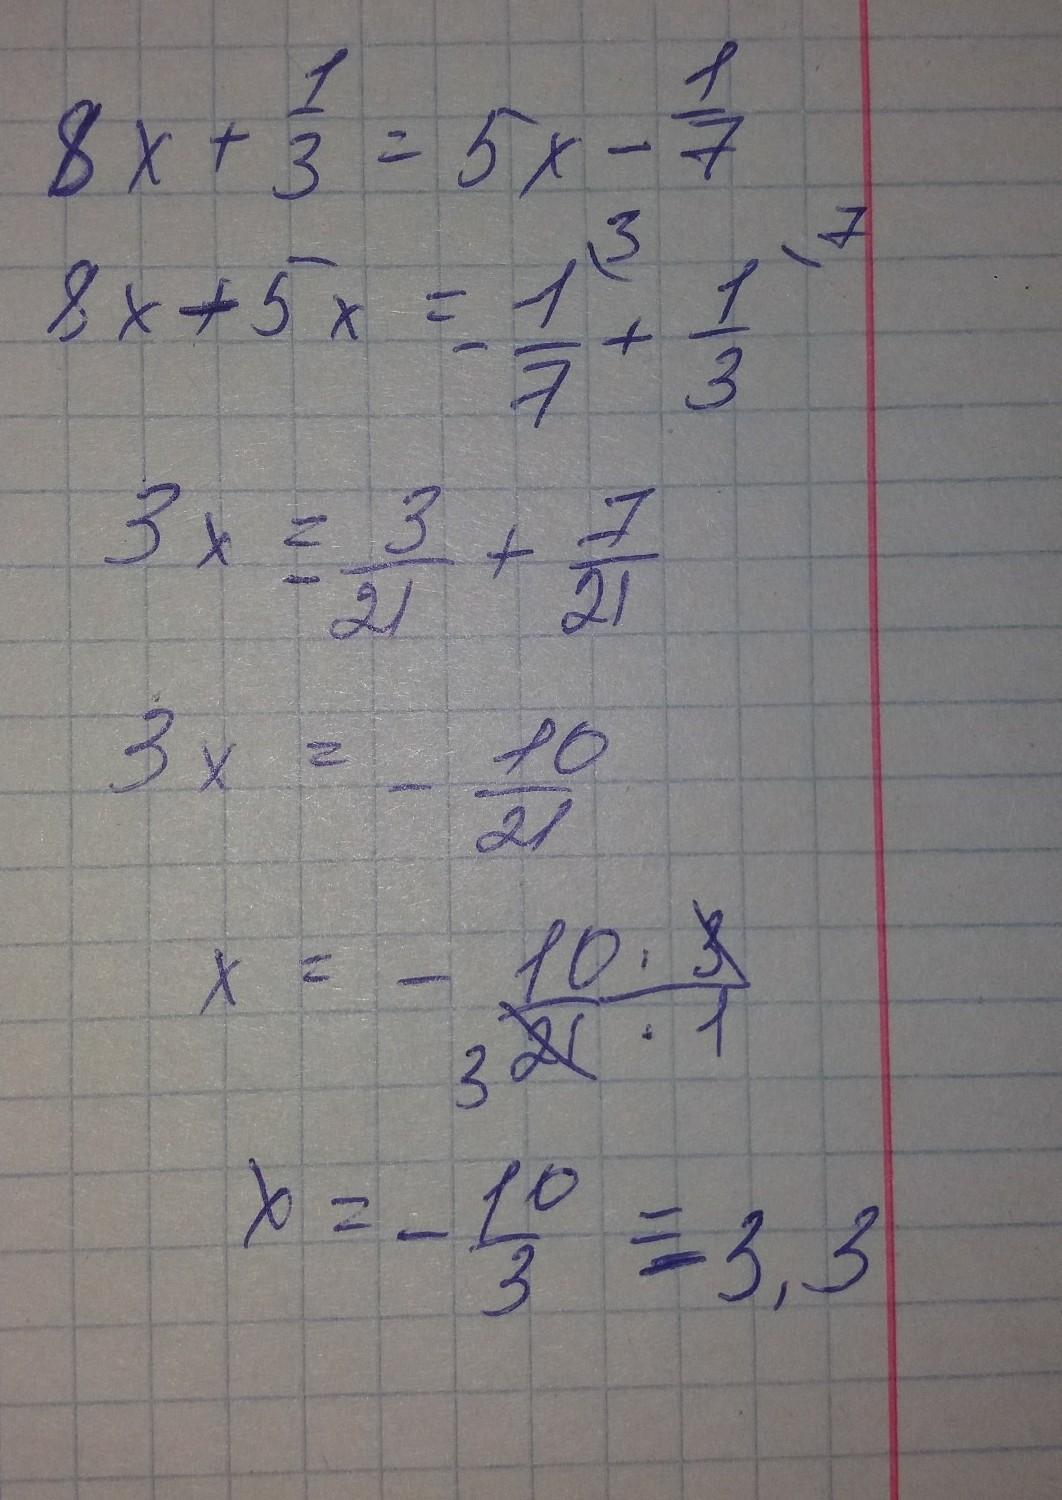 8x + 1/3 = 5x - 1/7
8x + 5x = - 1/7 \3 + 1/3 \7
3x = - 3/21 + 7/21
3x = - 10/21
x = - 10 · 3 / 21 · 1 3
x = - 10/3 = - 3,3